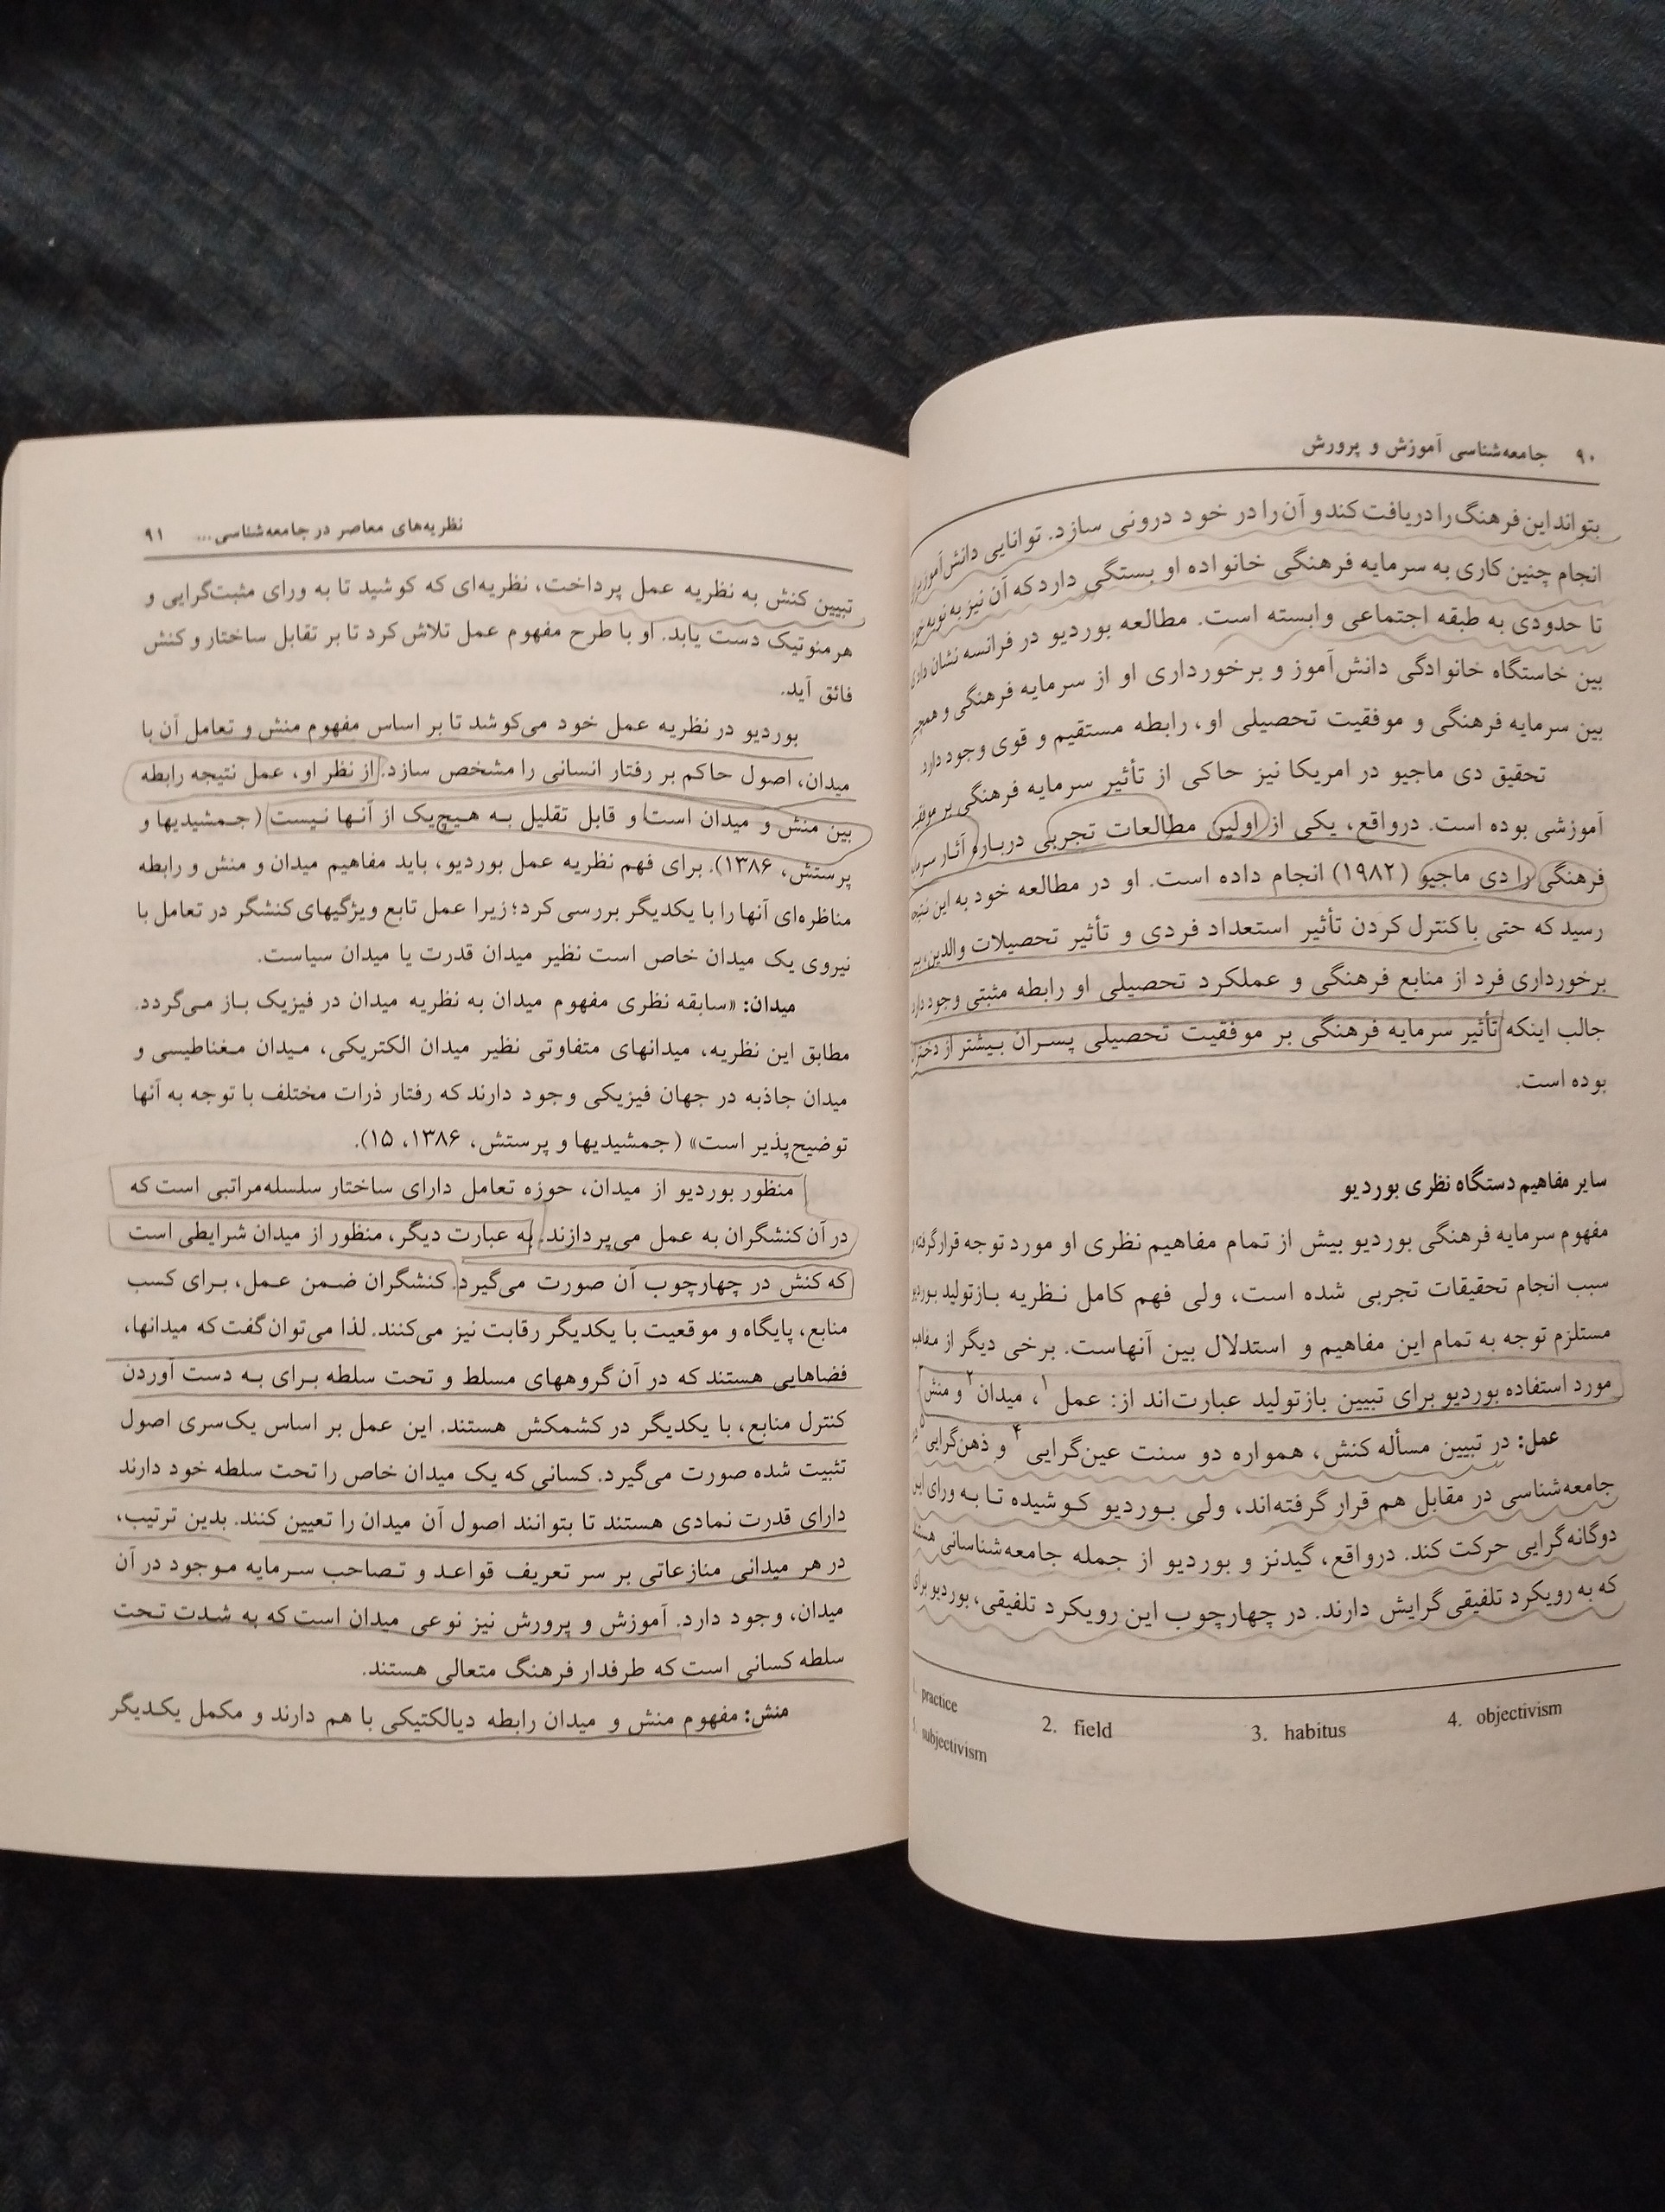 ۹۰ جامعه‌شناسی آموزش و پرورش
بتواند این فرهنگ را دریافت کند و آن را در خود درونی سازد. توانایی دانش‌آموز
انجام چنین کاری به سرمایه فرهنگی خانواده او بستگی دارد که آن نیز به نوبه
تا حدودی به طبقه اجتماعی وابسته است. مطالعه بوردیو در فرانسه نشان داد
بین خاستگاه خانوادگی دانش‌آموز و برخورداری او از سرمایه فرهنگی و
بین سرمایه فرهنگی و موفقیت تحصیلی او، رابطه مستقیم و قوی وجود دارد.
تحقیق دی ماجیو در امریکا نیز حاکی از تأثیر سرمایه فرهنگی بر
آموزشی بوده است. درواقع، یکی از اولین مطالعات تجربی درباره آثار
فرهنگی را دی ماجیو (۱۹۸۲) انجام داده است. او در مطالعه خود به این
رسید که حتی با کنترل کردن تأثیر استعداد فردی و تأثیر تحصیلات والدین،
برخورداری فرد از منابع فرهنگی و عملکرد تحصیلی او رابطه مثبتی وجود
جالب اینکه تأثیر سرمایه فرهنگی بر موفقیت تحصیلی پسران بیشتر از
بوده است.
سایر مفاهیم دستگاه نظری بوردیو
مفهوم سرمایه فرهنگی بوردیو بیش از تمام مفاهیم نظری او مورد توجه قرار گرفته
سبب انجام تحقیقات تجربی شده است، ولی فهم کامل نظریه بازتولید
مستلزم توجه به تمام این مفاهیم و استدلال بین آنهاست. برخی دیگر از
مورد استفاده بوردیو برای تبیین بازتولید عبارت‌اند از: عمل۱، میدان۲ و منش
عمل: در تبیین مسأله کنش، همواره دو سنت عین‌گرایی۴ و ذهن‌گرایی
جامعه‌شناسی در مقابل هم قرار گرفته‌اند، ولی بوردیو کوشیده تا به ورای
دوگانه‌گرایی حرکت کند. درواقع، گیدنز و بوردیو از جمله جامعه‌شناسانی
که به رویکرد تلفیقی گرایش دارند. در چهارچوب این رویکرد تلفیقی، بوردیو برای
practice 2. field 3. habitus 4. objectivism
subjectivism
نظریه‌های معاصر در جامعه‌شناسی... ۹۱
تبیین کنش به نظریه عمل پرداخت، نظریه‌ای که کوشید تا به ورای مثبت‌گرایی و
هرمنوتیک دست یابد. او با طرح مفهوم عمل تلاش کرد تا بر تقابل ساختار و کنش
فائق آید.
بوردیو در نظریه عمل خود می‌کوشد تا بر اساس مفهوم منش و تعامل آن با
میدان، اصول حاکم بر رفتار انسانی را مشخص سازد. از نظر او، عمل نتیجه رابطه
بین منش و میدان است و قابل تقلیل به هیچ‌یک از آنها نیست (جمشیدیها و
پرستش، ۱۳۸۶). برای فهم نظریه عمل بوردیو، باید مفاهیم میدان و منش و رابطه
مناظره‌ای آنها را با یکدیگر بررسی کرد؛ زیرا عمل تابع ویژگیهای کنشگر در تعامل با
نیروی یک میدان خاص است نظیر میدان قدرت یا میدان سیاست.
میدان: «سابقه نظری مفهوم میدان به نظریه میدان در فیزیک باز می‌گردد.
مطابق این نظریه، میدانهای متفاوتی نظیر میدان الکتریکی، میدان مغناطیسی و
میدان جاذبه در جهان فیزیکی وجود دارند که رفتار ذرات مختلف با توجه به آنها
توضیح‌پذیر است» (جمشیدیها و پرستش، ۱۳۸۶، ۱۵).
منظور بوردیو از میدان، حوزه تعامل دارای ساختار سلسله‌مراتبی است که
در آن کنشگران به عمل می‌پردازند. به عبارت دیگر، منظور از میدان شرایطی است
که کنش در چهارچوب آن صورت می‌گیرد. کنشگران ضمن عمل، برای کسب
منابع، پایگاه و موقعیت با یکدیگر رقابت نیز می‌کنند. لذا می‌توان گفت که میدانها،
فضاهایی هستند که در آن گروههای مسلط و تحت سلطه برای به دست آوردن
کنترل منابع، با یکدیگر در کشمکش هستند. این عمل بر اساس یک‌سری اصول
تثبیت شده صورت می‌گیرد. کسانی که یک میدان خاص را تحت سلطه خود دارند
دارای قدرت نمادی هستند تا بتوانند اصول آن میدان را تعیین کنند. بدین ترتیب،
در هر میدانی منازعاتی بر سر تعریف قواعد و تصاحب سرمایه موجود در آن
میدان، وجود دارد. آموزش و پرورش نیز نوعی میدان است که به شدت تحت
سلطه کسانی است که طرفدار فرهنگ متعالی هستند.
منش: مفهوم منش و میدان رابطه دیالکتیکی با هم دارند و مکمل یکدیگر